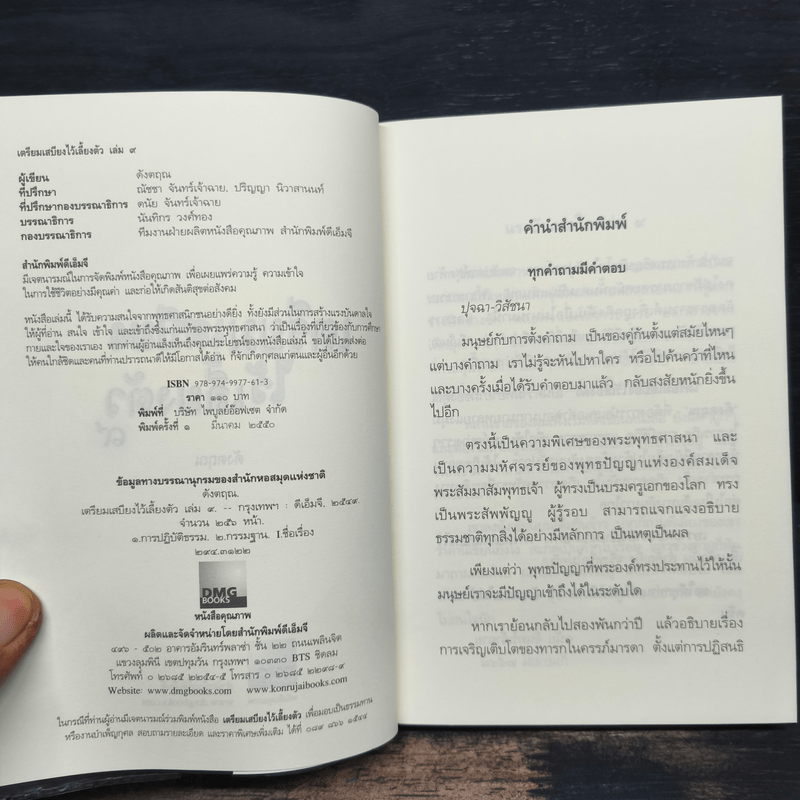 เตรียมเสบียงไว้เลี้ยงตัว เล่ม ๙
ผู้เขียน ดังตฤณ
ที่ปรึกษา ณัชชา จันทร์เจ้าฉาย, ปริญญา นิวาสานนท์
ที่ปรึกษากองบรรณาธิการ ดนัย จันทร์เจ้าฉาย
บรรณาธิการ นันทิกร วงศ์ทอง
กองบรรณาธิการ ทีมงานฝ่ายผลิตหนังสือคุณภาพ สำนักพิมพ์ดีเอ็มจี
สำนักพิมพ์ดีเอ็มจี
มีเจตนารมณ์ในการจัดพิมพ์หนังสือคุณภาพ เพื่อเผยแพร่ความรู้ ความเข้าใจ
ในการใช้ชีวิตอย่างมีคุณค่า และก่อให้เกิดสันติสุขต่อสังคม
หนังสือเล่มนี้ ได้รับความสนใจจากพุทธศาสนิกชนอย่างดียิ่ง ทั้งยังมีส่วนในการสร้างแรงบันดาลใจ
ให้ผู้ที่อ่าน สนใจ เข้าใจ และเข้าถึงซึ่งแก่นแท้ของพระพุทธศาสนา ว่าเป็นเรื่องที่เกี่ยวข้องกับการศึกษา
กายและใจของเราเอง หากท่านผู้อ่านเล็งเห็นถึงคุณประโยชน์ของหนังสือเล่มนี้ ขอได้โปรดส่งต่อ
ให้คนใกล้ชิดและคนที่ท่านปรารถนาดีให้มีโอกาสได้อ่าน ก็จักเกิดกุศลแก่ตนและผู้อื่นอีกด้วย
ISBN 978-974-9977-61-3
ราคา ๑๑๐ บาท
พิมพ์ที่ บริษัท ไพบูลย์อ๊อฟเซต จำกัด
พิมพ์ครั้งที่ ๑ มีนาคม ๒๕๕๐
ข้อมูลทางบรรณานุกรมของสำนักหอสมุดแห่งชาติ
ดังตฤณ.
เตรียมเสบียงไว้เลี้ยงตัว เล่ม ๙. -- กรุงเทพฯ : ดีเอ็มจี, ๒๕๔๙.
จำนวน ๒๕๖ หน้า.
๑.การปฏิบัติธรรม. ๒.กรรมฐาน. I.ชื่อเรื่อง
๒๙๔.๓๑๒๒
DMG
BOOKS
หนังสือคุณภาพ
ผลิตและจัดจำหน่ายโดยสำนักพิมพ์ดีเอ็มจี
๔๙๖ - ๕๐๒ อาคารอัมรินทร์พลาซ่า ชั้น ๒๒ ถนนเพลินจิต
แขวงลุมพินี เขตปทุมวัน กรุงเทพฯ ๑๐๓๓๐ BTS ชิดลม
โทรศัพท์ ๐ ๒๖๘๕ ๒๒๕๔-๕ โทรสาร ๐ ๒๖๘๕ ๒๒๙๘-๙
Website: www.dmgbooks.com www.konrujaibooks.com
ในกรณีที่ท่านผู้อ่านมีเจตนารมณ์ร่วมพิมพ์หนังสือ เตรียมเสบียงไว้เลี้ยงตัว เพื่อมอบเป็นธรรมทาน
หรืองานบำเพ็ญกุศล สอบถามรายละเอียด และราคาพิเศษเพิ่มเติม ได้ที่ ๐๘๙ ๘๑๖ ๑๕๔๔
คำนำสำนักพิมพ์
ทุกคำถามมีคำตอบ
ปุจฉา-วิสัชนา
มนุษย์กับการตั้งคำถาม เป็นของคู่กันตั้งแต่สมัยไหนๆ
แต่บางคำถาม เราไม่รู้จะหันไปหาใคร หรือไปค้นคว้าที่ไหน
และบางครั้งเมื่อได้รับคำตอบมาแล้ว กลับสงสัยหนักยิ่งขึ้น
ไปอีก
ตรงนี้เป็นความพิเศษของพระพุทธศาสนา และ
เป็นความมหัศจรรย์ของพุทธปัญญาแห่งองค์สมเด็จ
พระสัมมาสัมพุทธเจ้า ผู้ทรงเป็นบรมครูเอกของโลก ทรง
เป็นพระสัพพัญญู ผู้รู้รอบ สามารถแจกแจงอธิบาย
ธรรมชาติทุกสิ่งได้อย่างมีหลักการ เป็นเหตุเป็นผล
เพียงแต่ว่า พุทธปัญญาที่พระองค์ทรงประทานไว้ให้นั้น
มนุษย์เราจะมีปัญญาเข้าถึงได้ในระดับใด
หากเราย้อนกลับไปสองพันกว่าปี แล้วอธิบายเรื่อง
การเจริญเติบโตของทารกในครรภ์มารดา ตั้งแต่การปฏิสนธิ